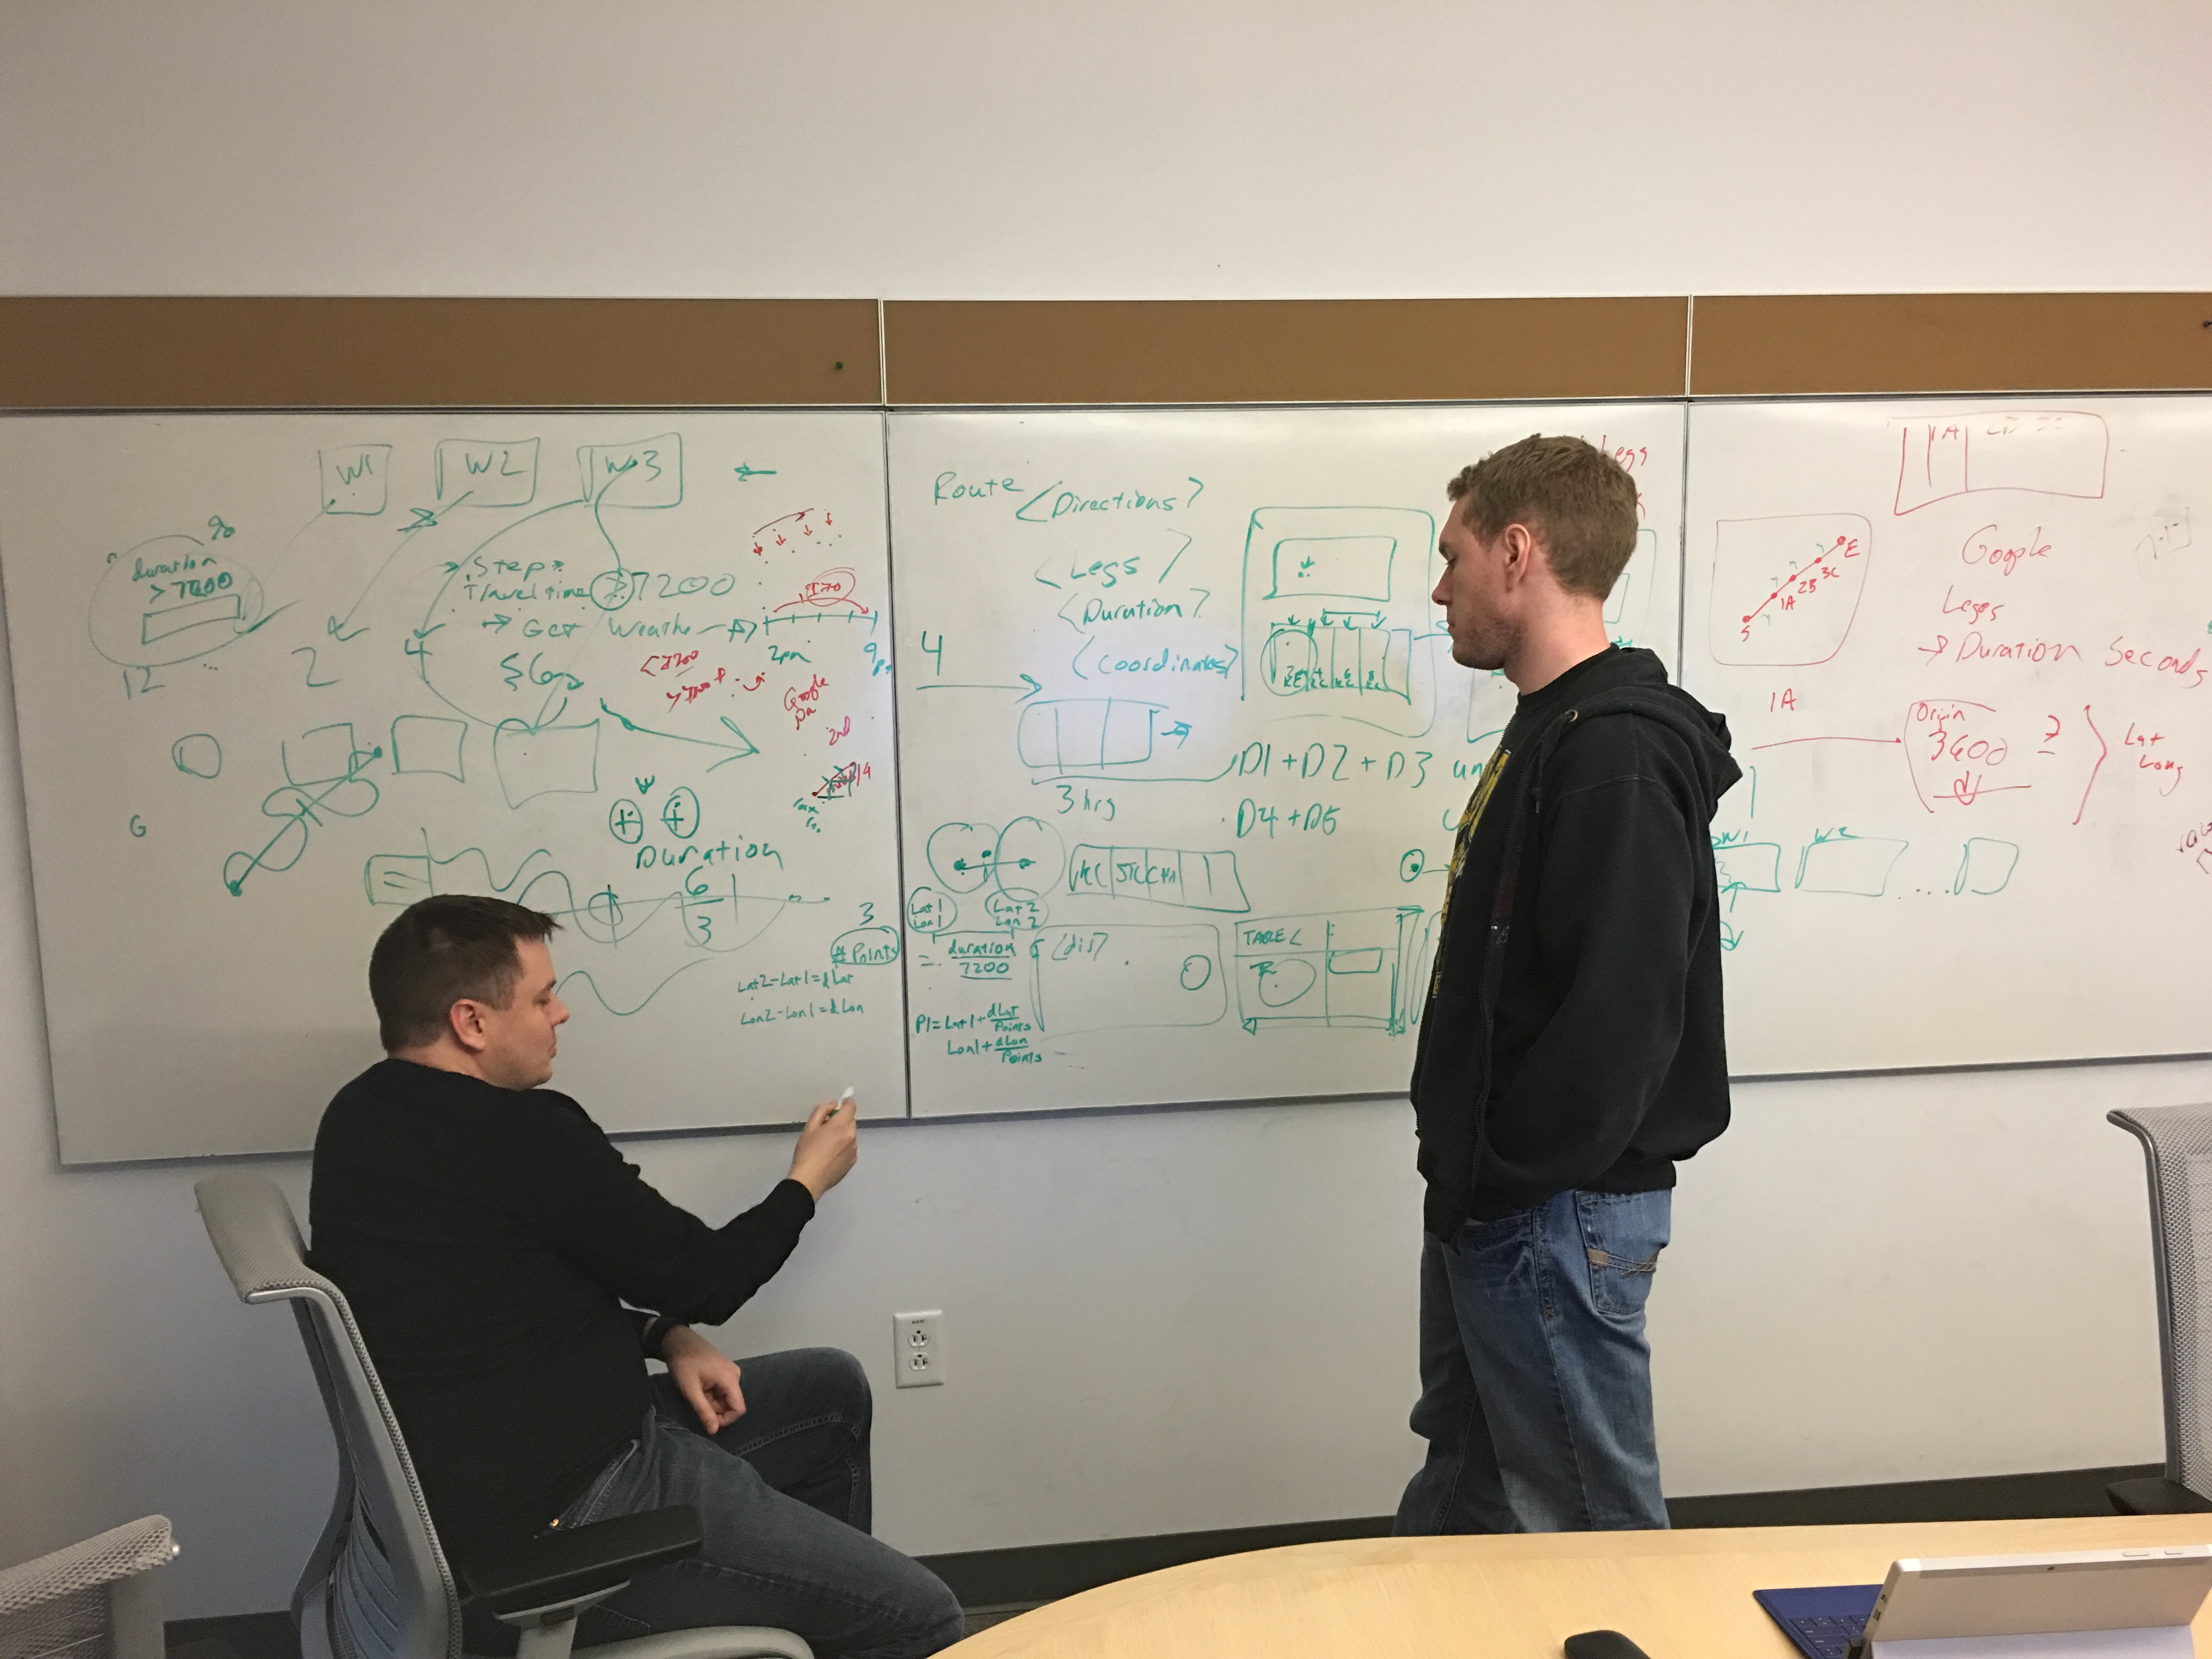 W1
W2
W3
duration
> 7200
12
2
4
Steps
Travel time > 7200
→ Get Weathe
I70
2pm
<7200
Google
2nd
G
Duration
6
3
3
# Points
Lat2-Lat1=dLat
Lon2-Lon1=dLon
Route <Directions>
<Legs>
<Duration>
<Coordinates>
4
3 hrs
D1+D2+D3 un
D4+D5
KC STL CHI
Lat1
Lon1
Lat2
Lon2
= duration
7200
P1=Lat1+dLat
Points
Lon1+dLon
Points
<dis>
TABLE <
Legs
1A
S
1A
2B
3C
E
Google
Legs
→ Duration Seconds
1A
Origin
3600
?
Lat
Long
W1
W2
....